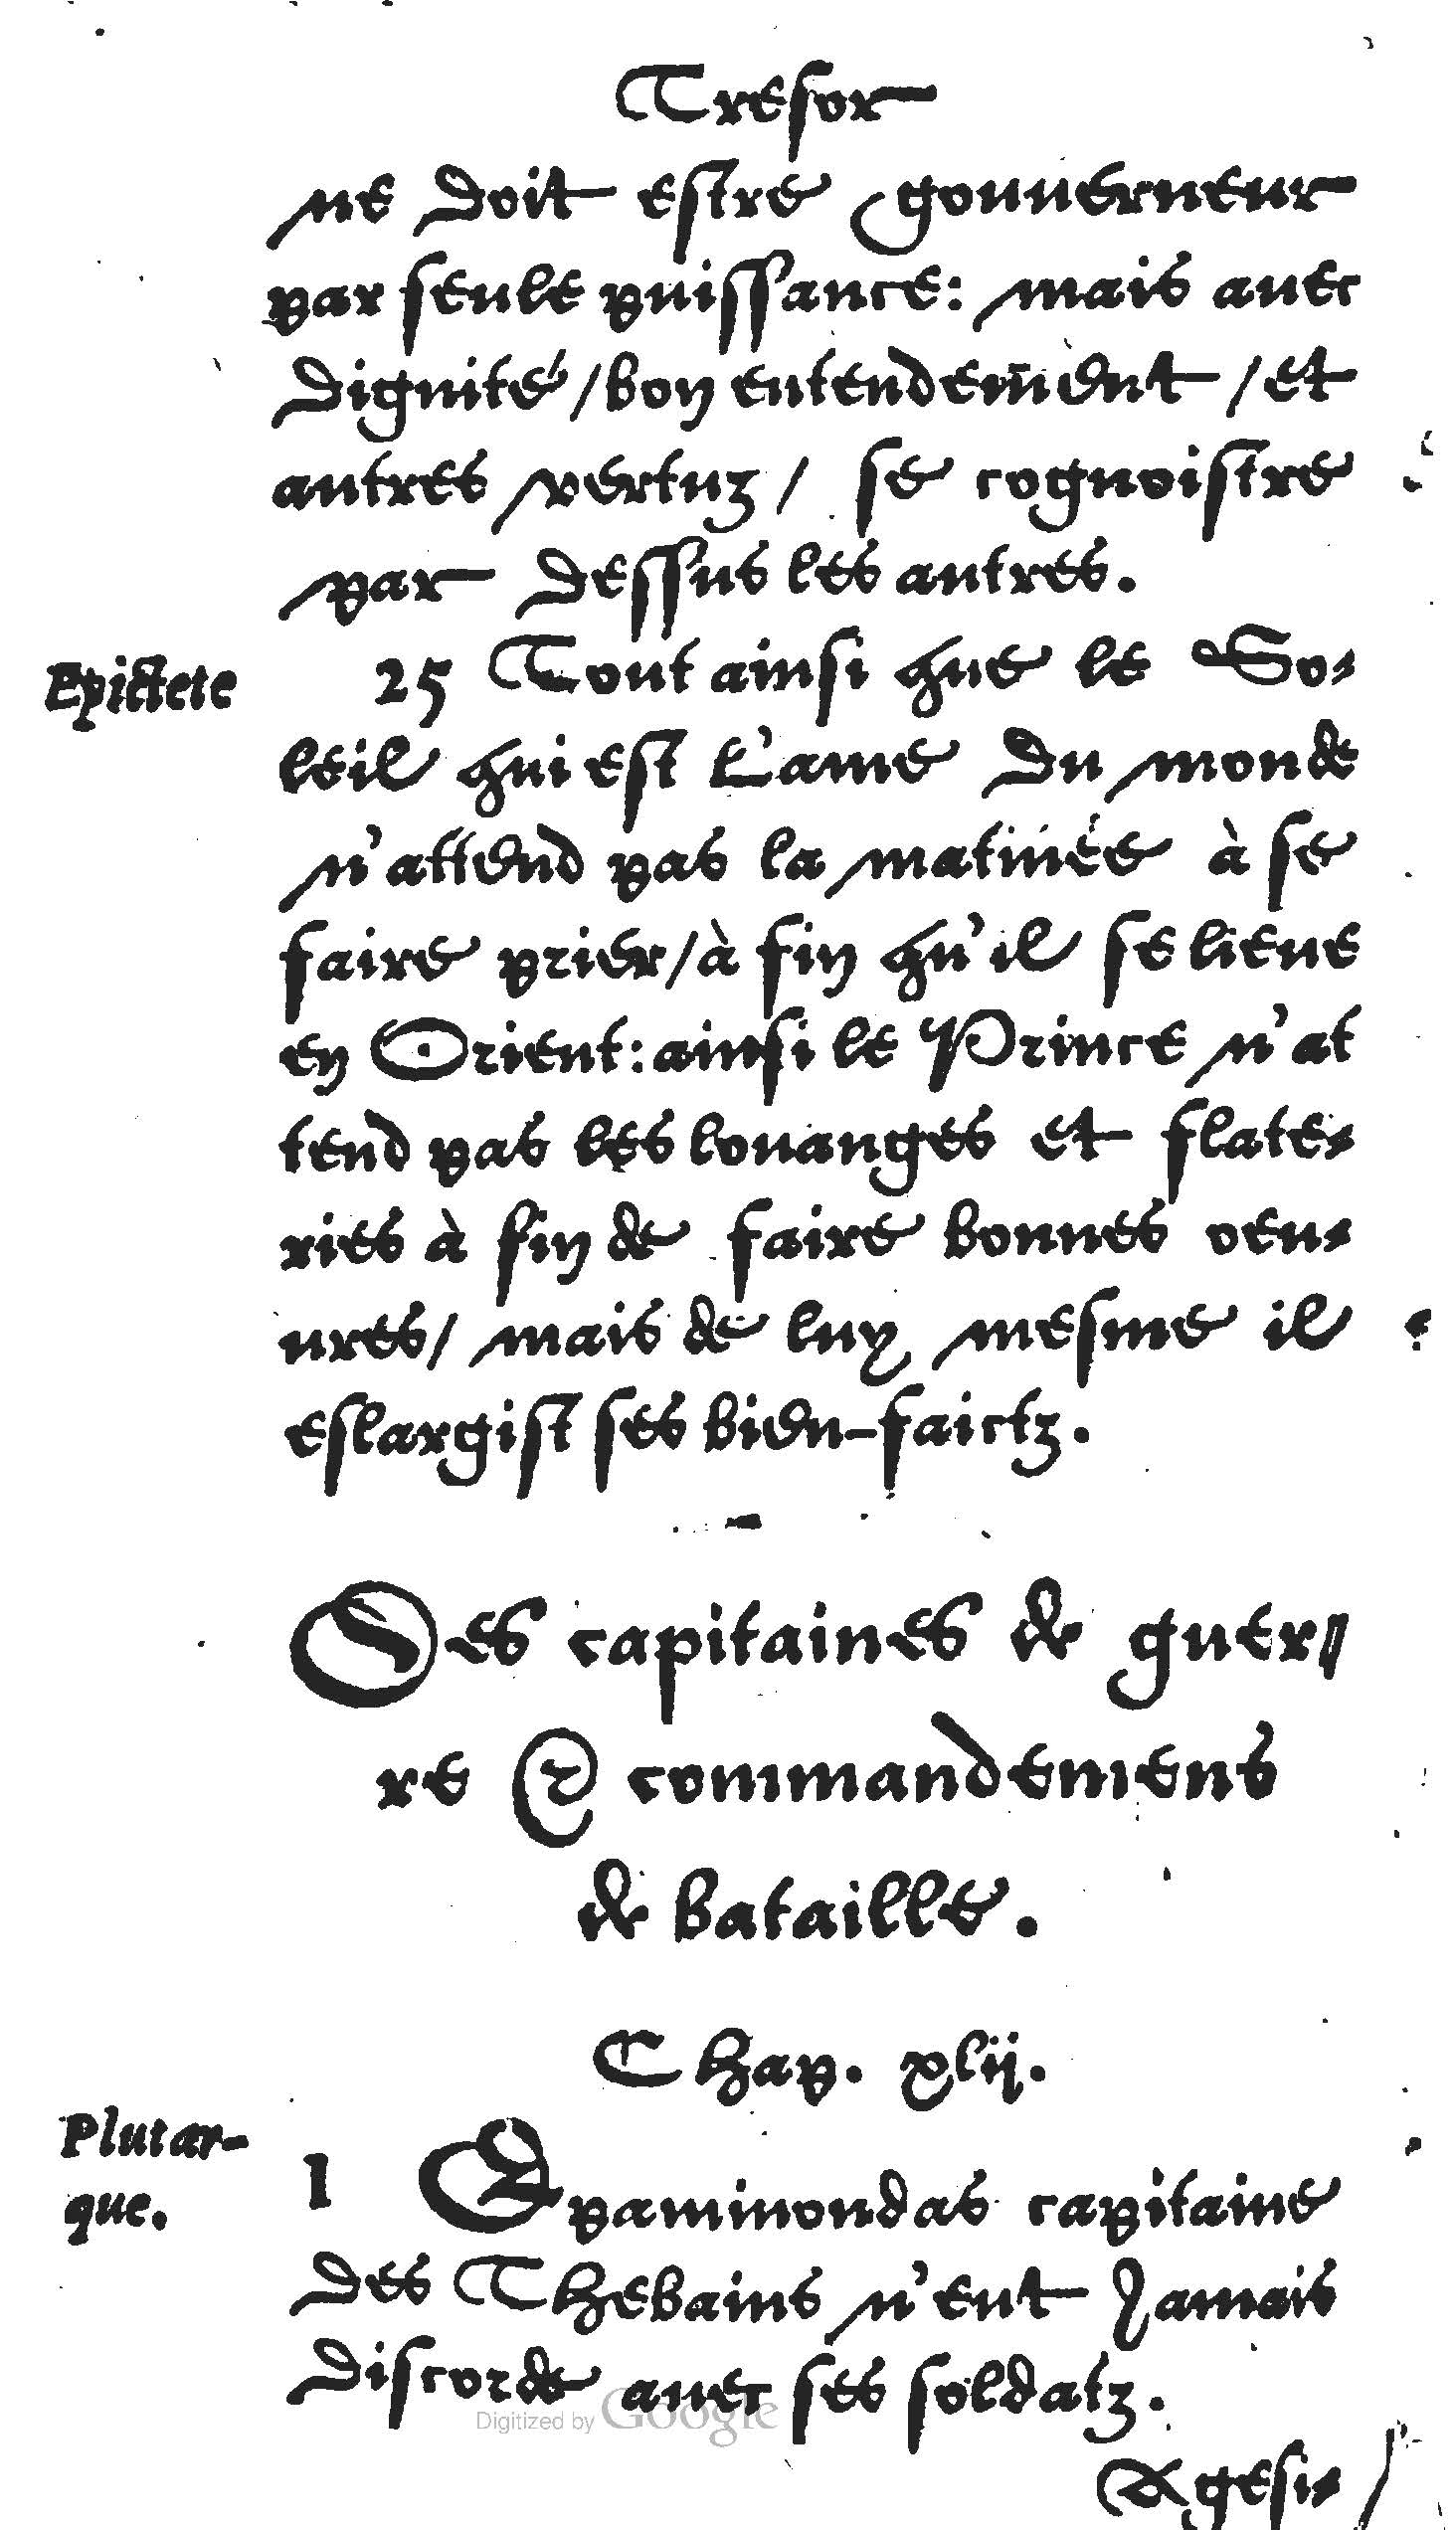 Tresor
ne doit estre gouuerneur
par seule puissance: mais auec
dignité/bon entendement/et
autres vertuz/ se cognoistre
par dessus les autres.
Epictete
25 Tout ainsi que le So-
leil qui est L'ame du monde
n'attend pas la matinée à se
faire prier/à fin qu'il se lieue
en Orient: ainsi le Prince n'at
tend pas les louanges et flate-
ries à fin de faire bonnes oeu-
ures/ mais de luy mesme il
eslargist ses bien-faictz.
Des capitaines de guer-
re & commandemens
de bataille.
Chap. xlij.
Plutar-
que.
1 Epaminondas capitaine
des Thebains n'eut Jamais
discorde auec ses soldatz.
Digitized by Google
Agesi-